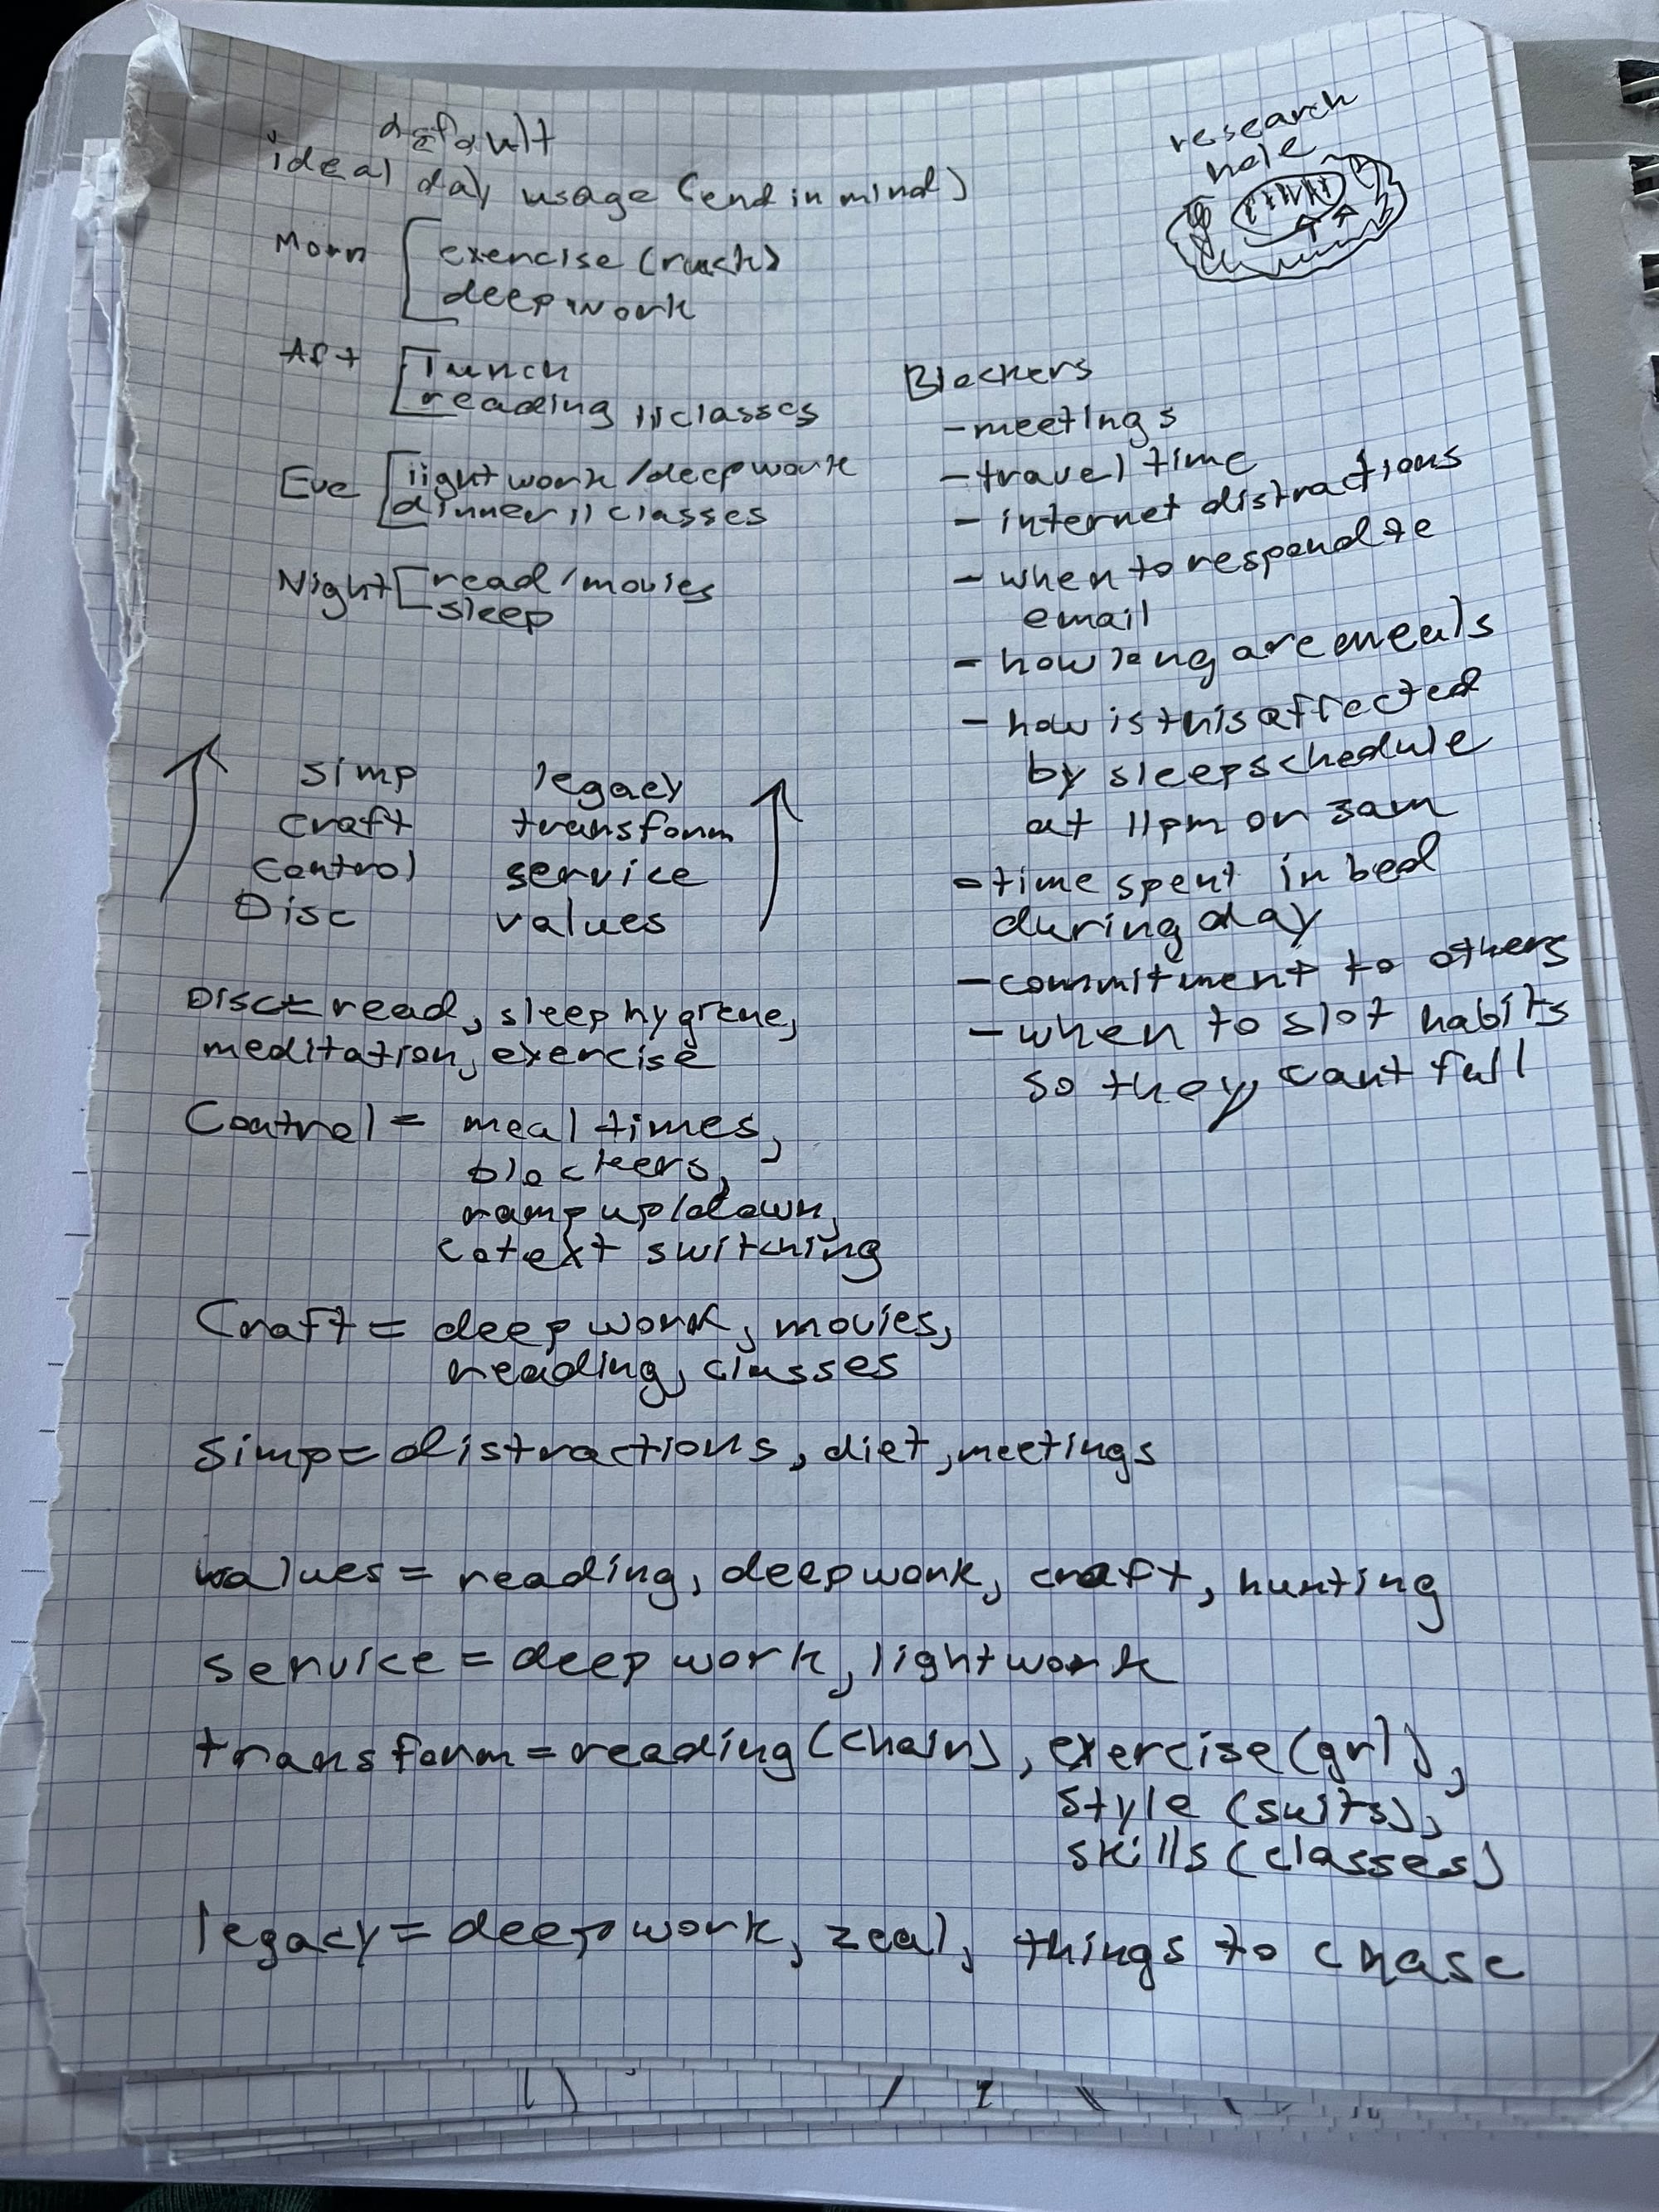 default
ideal day usage (end in mind)
research
hole
Morn exercise (ruck)
deep work
Aft lunch
reading || classes
Eve light work / deep work
dinner || classes
Night read / movies
sleep
Blockers
- meetings
- travel time
- internet distractions
- when to respond to
email
- how long are meals
- how is this affected
by sleep schedule
at 11pm or 3am
- time spent in bed
during day
- commitment to others
- when to slot habits
so they cant fall
simp legacy
craft transform
control service
Disc values
Disc = read, sleep hygiene,
meditation, exercise
Control = meal times,
blockers,
ramp up/down,
cotext switching
Craft = deep work, movies,
reading, classes
simp = distractions, diet, meetings
values = reading, deep work, craft, hunting
service = deep work, light work
transform = reading (chain), exercise (grl),
style (suits),
skills (classes)
legacy = deep work, zeal, things to chase